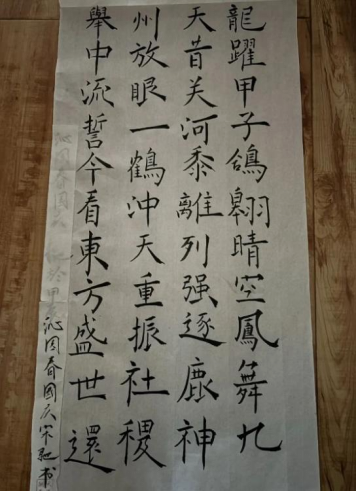 龍躍甲子鴿翱晴空鳳舞九
天昔关河黍離列强逐鹿神
州放眼一鶴冲天重振社稷
舉中流誓今看東方盛世還
沁园春國庆宋驰书